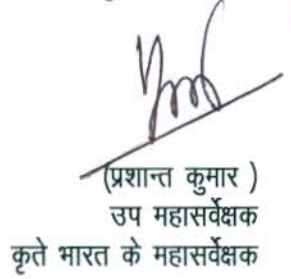 (प्रशान्त कुमार )
उप महासर्वेक्षक
कृते भारत के महासर्वेक्षक